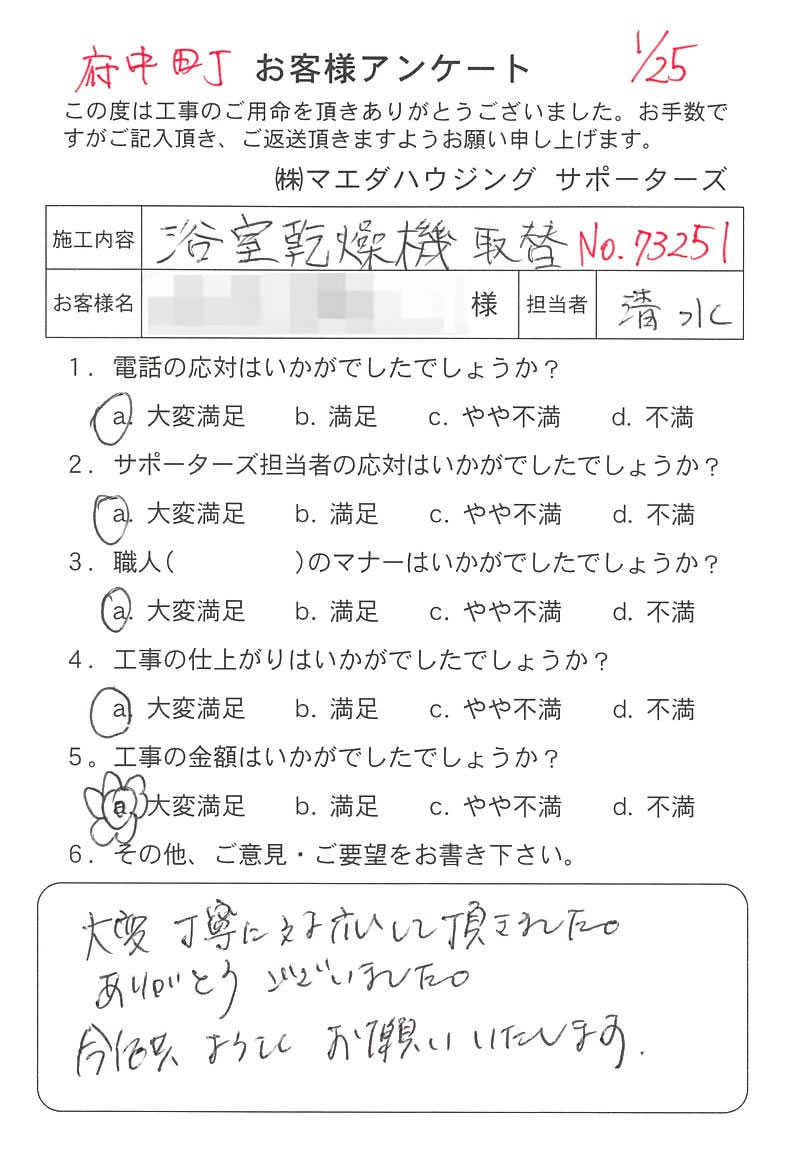 府中町 お客様アンケート 1/25
この度は工事のご用命を頂きありがとうございました。お手数で
すがご記入頂き、ご返送頂きますようお願い申し上げます。
㈱マエダハウジング サポーターズ
施工内容 浴室乾燥機 取替 No.73251
お客様名 様 担当者 清水
1. 電話の応対はいかがでしたでしょうか?
a. 大変満足 b. 満足 c. やや不満 d. 不満
2. サポーターズ担当者の応対はいかがでしたでしょうか?
a. 大変満足 b. 満足 c. やや不満 d. 不満
3. 職人( )のマナーはいかがでしたでしょうか?
a. 大変満足 b. 満足 c. やや不満 d. 不満
4. 工事の仕上がりはいかがでしたでしょうか?
a. 大変満足 b. 満足 c. やや不満 d. 不満
5。工事の金額はいかがでしたでしょうか?
a. 大変満足 b. 満足 c. やや不満 d. 不満
6. その他、ご意見・ご要望をお書き下さい。
大変 丁寧に対応して頂きました。
ありがとう ございました。
今後共 よろしく お願い いたします.